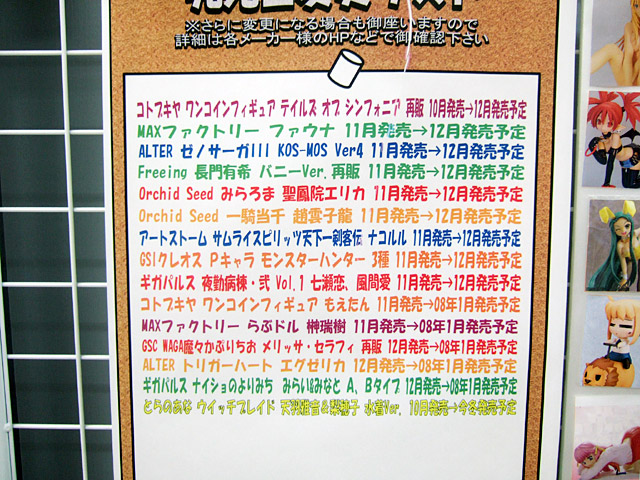 ※さらに変更になる場合も御座いますので
詳細は各メーカー様のHPなどで御確認下さい
コトブキヤ ワンコインフィギュア テイルズ オブ シンフォニア 再販 10月発売→12月発売予定
MAXファクトリー ファウナ 11月発売→12月発売予定
ALTER ゼノサーガIII KOS-MOS Ver4 11月発売→12月発売予定
Freeing 長門有希 バニーVer.再販 11月発売→12月発売予定
Orchid Seed みらろま 聖鳳院エリカ 11月発売→12月発売予定
Orchid Seed 一騎当千 趙雲子龍 11月発売→12月発売予定
アートストーム サムライスピリッツ天下一剣客伝 ナコルル 11月発売→12月発売予定
GSIクレオス Pキャラ モンスターハンター 3種 11月発売→12月発売予定
ギガパルス 夜勤病棟・弐 Vol.1 七瀬恋、風間愛 11月発売→12月発売予定
コトブキヤ ワンコインフィギュア もえたん 11月発売→08年1月発売予定
MAXファクトリー らぶドル 榊瑞樹 11月発売→08年1月発売予定
GSC WAGA魔々かぷりちお メリッサ・セラフィ 再販 12月発売→08年1月発売予定
ALTER トリガーハート エグゼリカ 12月発売→08年1月発売予定
ギガパルス ナイショのよりみち みらい&みなと A、Bタイプ 12月発売→08年1月発売予定
とらのあな ウイッチブレイド 天羽雅音&梨穂子 水着Ver. 10月発売→今冬発売予定